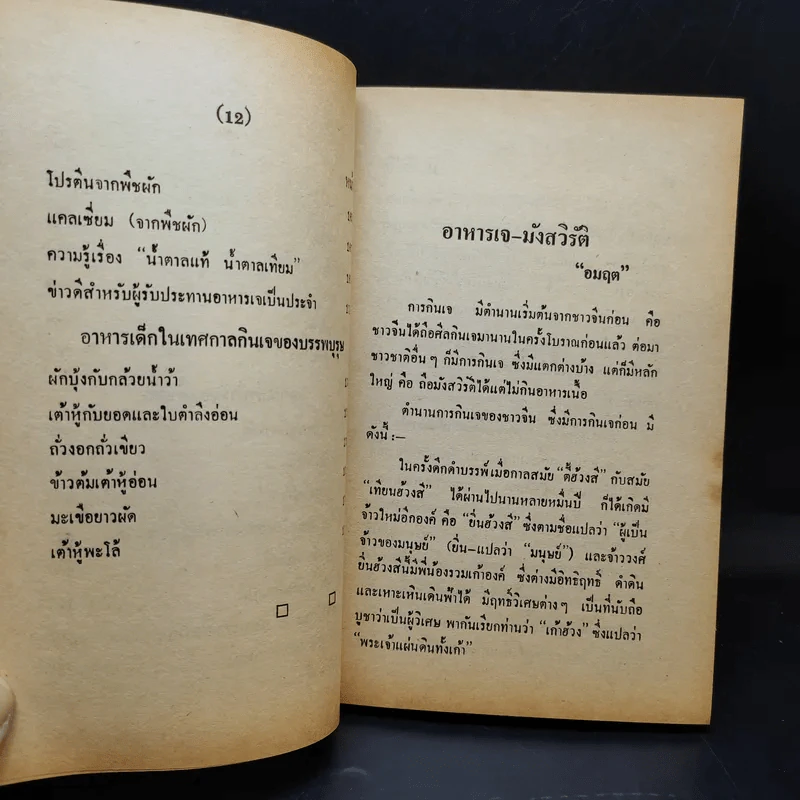 (12)
โปรตีนจากพืชผัก
แคลเซี่ยม (จากพืชผัก)
ความรู้เรื่อง “น้ำตาลแท้ น้ำตาลเทียม”
ข่าวดีสำหรับผู้รับประทานอาหารเจเป็นประจำ
อาหารเด็กในเทศกาลกินเจของบรรพบุรุษ
ผักบุ้งกับกล้วยน้ำว้า
เต้าหู้กับยอดและใบตำลึงอ่อน
ถั่วงอกถั่วเขียว
ข้าวต้มเต้าหู้อ่อน
มะเขือยาวผัด
เต้าหู้พะโล้
อาหารเจ-มังสวิรัติ
“อมฤต”
การกินเจ มีตำนานเริ่มต้นจากชาวจีนก่อน คือ
ชาวจีนได้ถือศีลกินเจมานานในครั้งโบราณก่อนแล้ว ต่อมา
ชาวชาติอื่น ๆ ก็มีการกินเจ ซึ่งมีแตกต่างบ้าง แต่ก็มีหลัก
ใหญ่ คือ ถือมังสวิรัติได้แต่ไม่กินอาหารเนื้อ
ตำนานการกินเจของชาวจีน ซึ่งมีการกินเจก่อน มี
ดังนี้ :—
ในครั้งดึกดำบรรพ์เมื่อกาลสมัย “ตี้ฮ้วงสี” กับสมัย
“เทียนฮ้วงสี” ได้ผ่านไปนานหลายหมื่นปี ก็ได้เกิดมี
จ้าวใหม่อีกองค์ คือ “ยิ่นฮ้วงสี” ซึ่งตามชื่อแปลว่า “ผู้เป็น
จ้าวของมนุษย์” (ยิ่น-แปลว่า “มนุษย์”) และจ้าววงศ์
ยิ่นฮ้วงสีนี้มีพี่น้องรวมเก้าองค์ ซึ่งต่างมีอิทธิฤทธิ์ ดำดิน
และเหาะเหินเดินฟ้าได้ มีฤทธิ์วิเศษต่างๆ เป็นที่นับถือ
บูชาว่าเป็นผู้วิเศษ พากันเรียกท่านว่า “เก้าฮ้วง” ซึ่งแปลว่า
“พระเจ้าแผ่นดินทั้งเก้า”